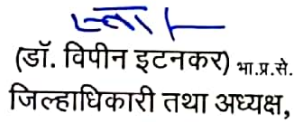 (डॉ. विपीन इटनकर) भा.प्र.से.
जिल्हाधिकारी तथा अध्यक्ष,